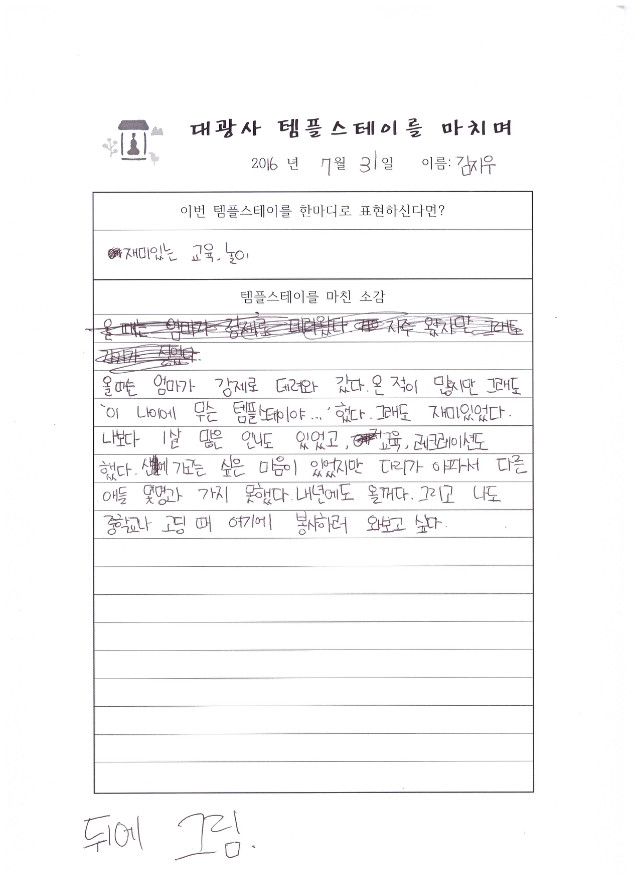 대광사 템플스테이를 마치며
2016 년 7월 31일 이름: 김지우
이번 템플스테이를 한마디로 표현하신다면?
재미있는 교육, 놀이
템플스테이를 마친 소감
올 때는 엄마가 강제로 데려왔다. 자주 왔지만 그래도
싫었다.
올때는 엄마가 강제로 데려와 갔다. 온 적이 많지만 그래도
'이 나이에 무슨 템플스테이야...' 했다. 그래도 재미있었다.
나보다 1살 많은 언니도 있었고, 교육, 레크레이션도
했다. 가고는 싶은 마음이 있었지만 다리가 아파서 다른
애들 몇명과 가지 못했다. 내년에도 올꺼다. 그리고 나도
중학교나 고딩 때 여기에 봉사하러 와보고 싶다.
뒤에 그림.